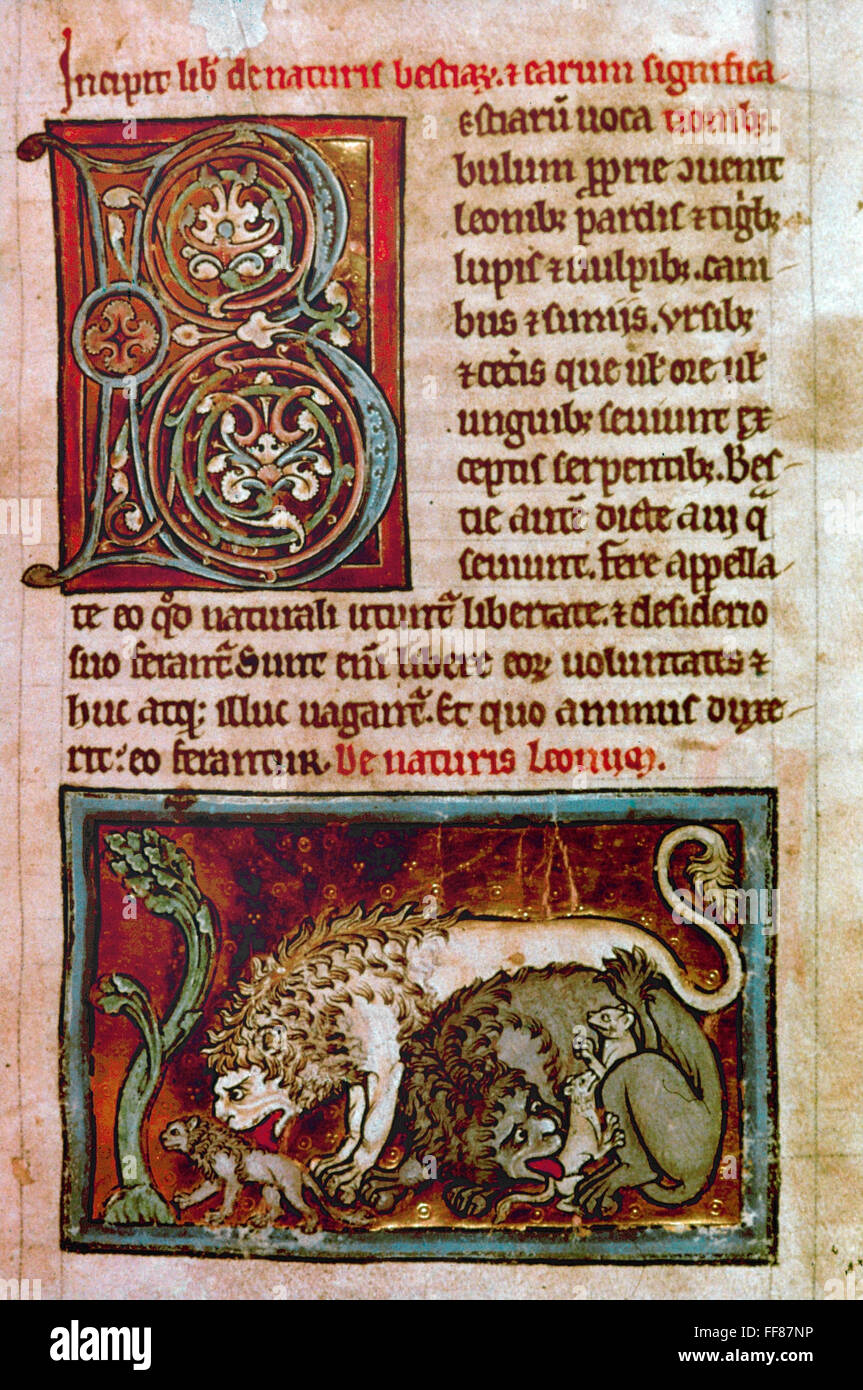 Incipit lib̄ de naturis bestiaꝝ. ⁊ earum significa
B
estiarū uoca tionib;.
bulum ꝓprie ↄuenit
leonib; pardis ⁊ tig̾b;
lupis ⁊ uulpib;. cani
bus ⁊ simijs. vrsib;
⁊ cet̾is que ul̵ ore ul̵
unguib; seuiunt ex
ceptis serpentib;. Bes-
tie autē dicte a ui q̄
seuiunt. fere appella
te eo qd̾ naturali utunt᷑ libertate. ⁊ desiderio
suo ferant᷑. Sunt eni᷑ libere eoꝝ uoluntates ⁊
huc atq; illuc uagant᷑. Et quo animus duxe-
rit: eo ferantur. De naturis Leonum.
alamy stock photo
FF87NP
www.alamy.com